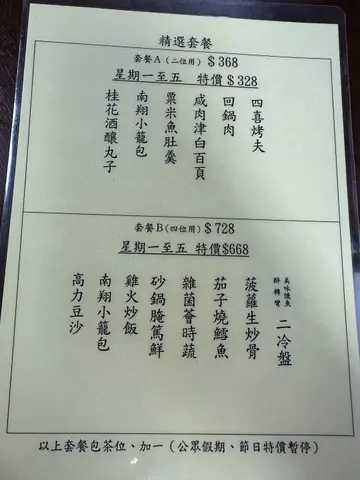 精選套餐
套餐A(二位用)$368
星期一至五 特價$328
四喜烤夫
回鍋肉
咸肉津白百頁
粟米魚肚羹
南翔小籠包
桂花酒釀丸子
套餐B(四位用)$728
星期一至五 特價$668
美味燻魚
醉轉彎
二冷盤
菠蘿生炒骨
茄子燒鱈魚
雜菌薈時蔬
砂鍋腌篤鮮
雞火炒飯
南翔小籠包
高力豆沙
以上套餐包茶位、加一(公眾假期、節日特價暫停)